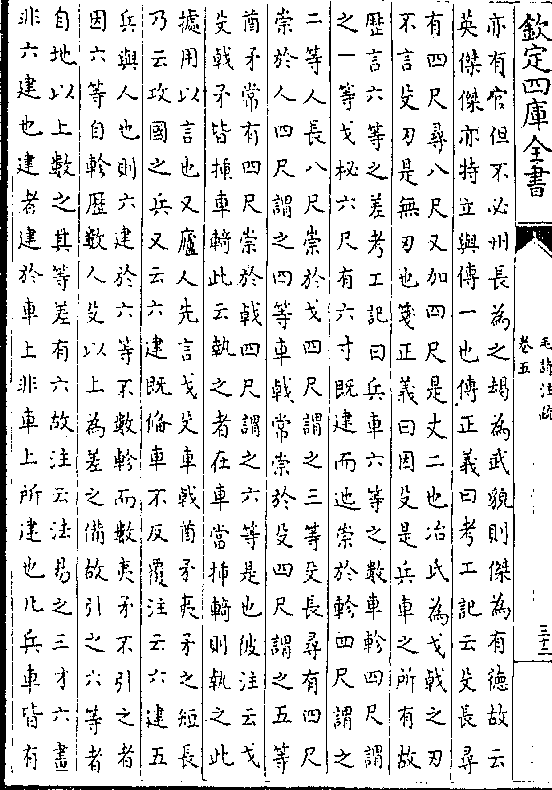 欽定四庫全書
毛詩注疏
卷五
三十二
亦有官但不必州長為之朅為武貌則傑為有徳故云
英傑傑亦特立與傳一也傳正義曰考工記云殳長尋
有四尺尋八尺又加四尺是丈二也冶氏為戈㦸之刃
不言殳刃是無刃也箋正義曰因殳是兵車之所有故
歴言六等之差考工記曰兵車六等之數車軫四尺謂
之一等戈柲六尺有六寸既建而迆崇於軫四尺謂之
二等人長八尺崇於戈四尺謂之三等殳長尋有四尺
崇於人四尺謂之四等車㦸常崇於殳四尺謂之五等
酋矛常有四尺崇於㦸四尺謂之六等是也彼注云戈
殳㦸矛皆揷車輢此云執之者在車當揷輢則執之此
據用以言也又廬人先言戈殳車㦸酋矛夷矛之短長
乃云攻國之兵又云六建既偹車不反覆注云六建五
兵與人也則六建於六等不數軫而數夷矛不引之者
因六等自軫歴數人殳以上為差之備故引之六等者
自地以上數之其等差有六故注云法易之三才六畫
非六建也建者建於車上非車上所建也凡兵車皆有